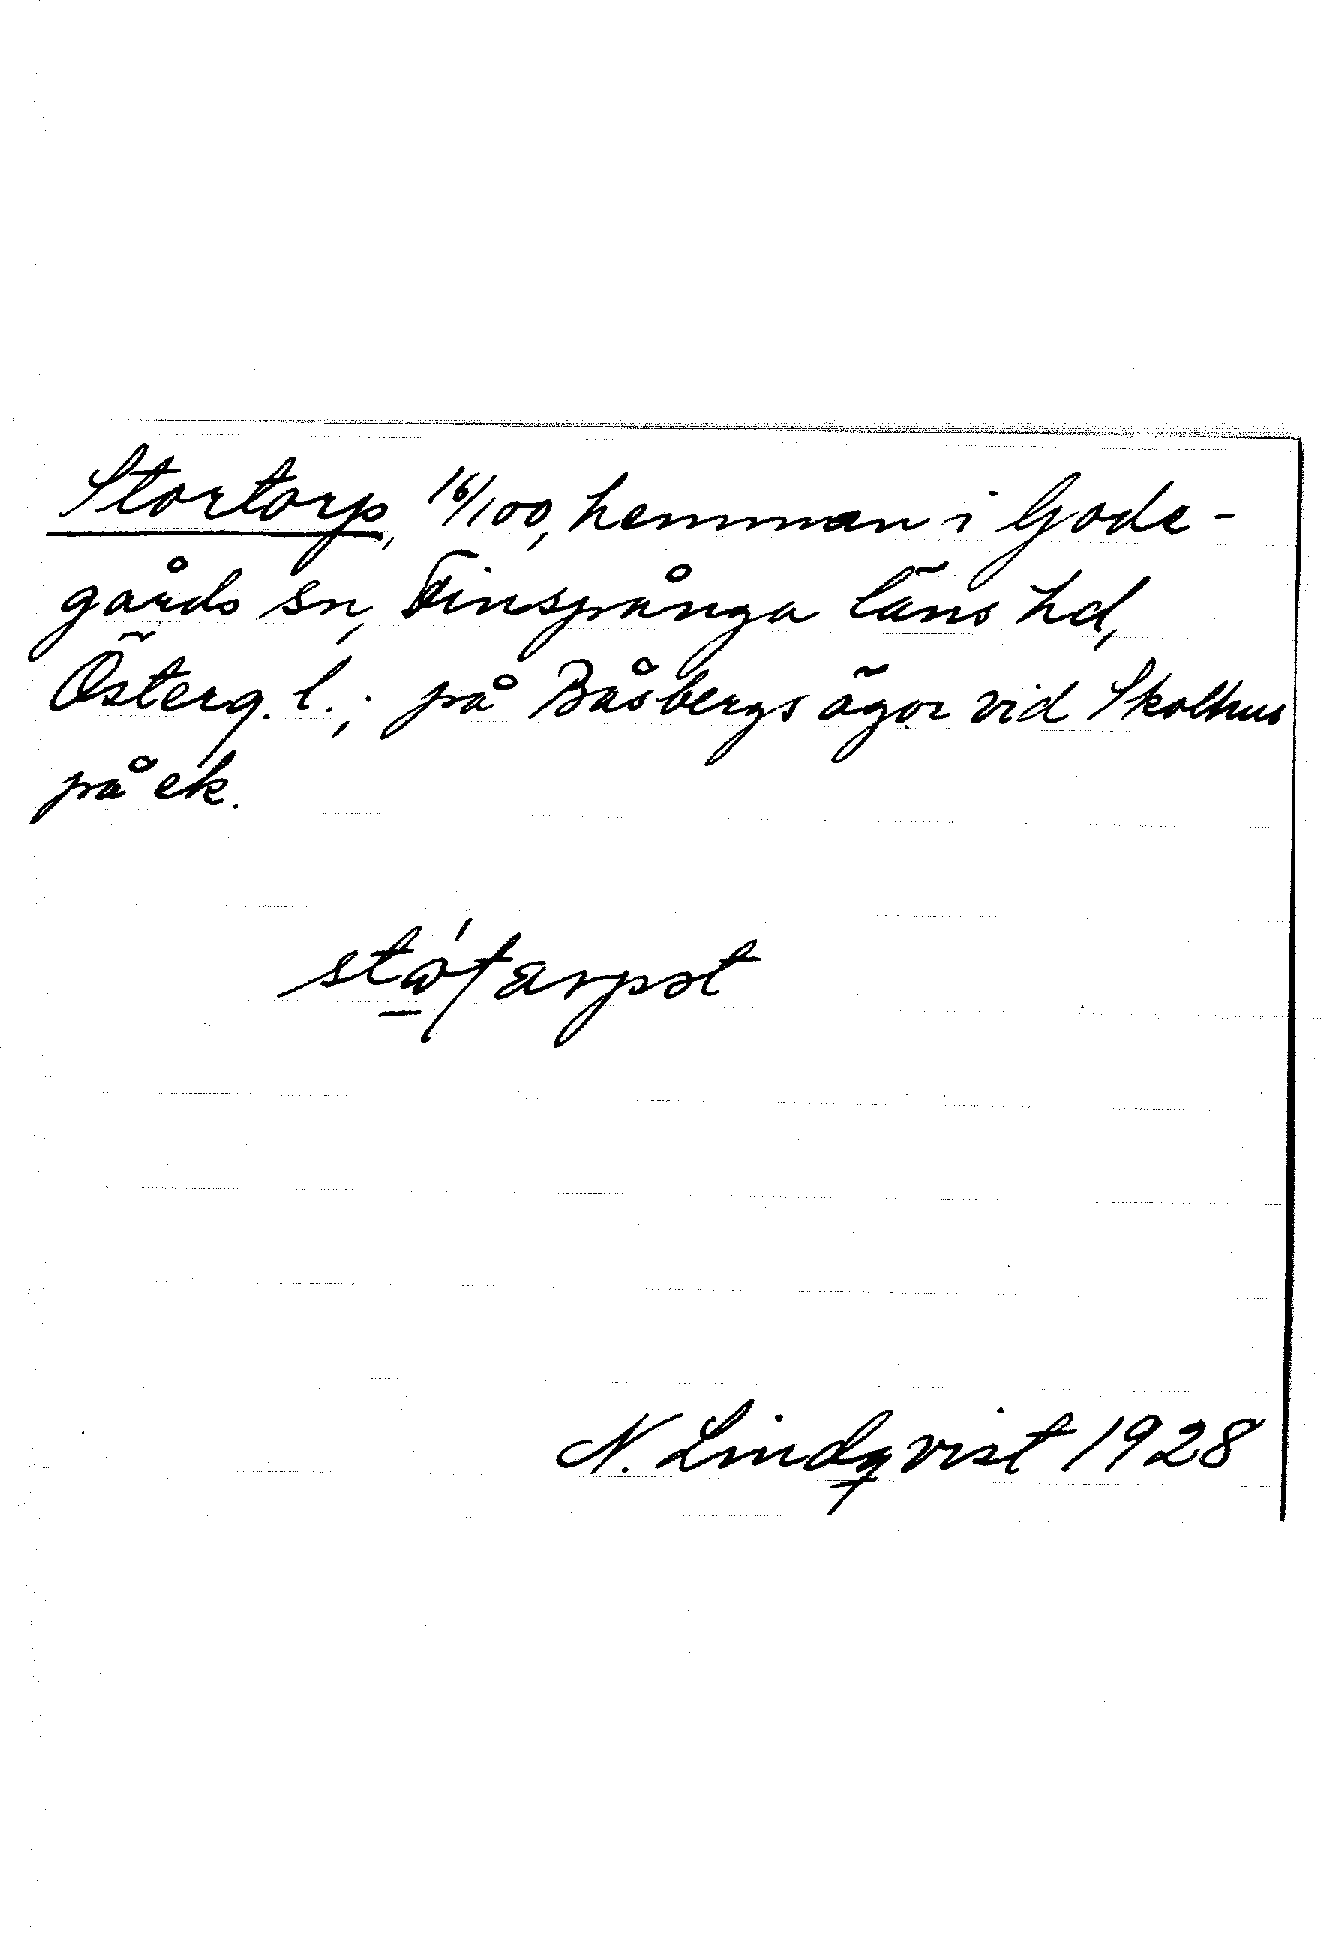 Stortorp, 16/100, hemman i Gode-
gårds sn, Finspånga läns hd,
Österg. l.; på Båsbergs ägor vid Skolhus
på ek.
N. Lindqvist 1928